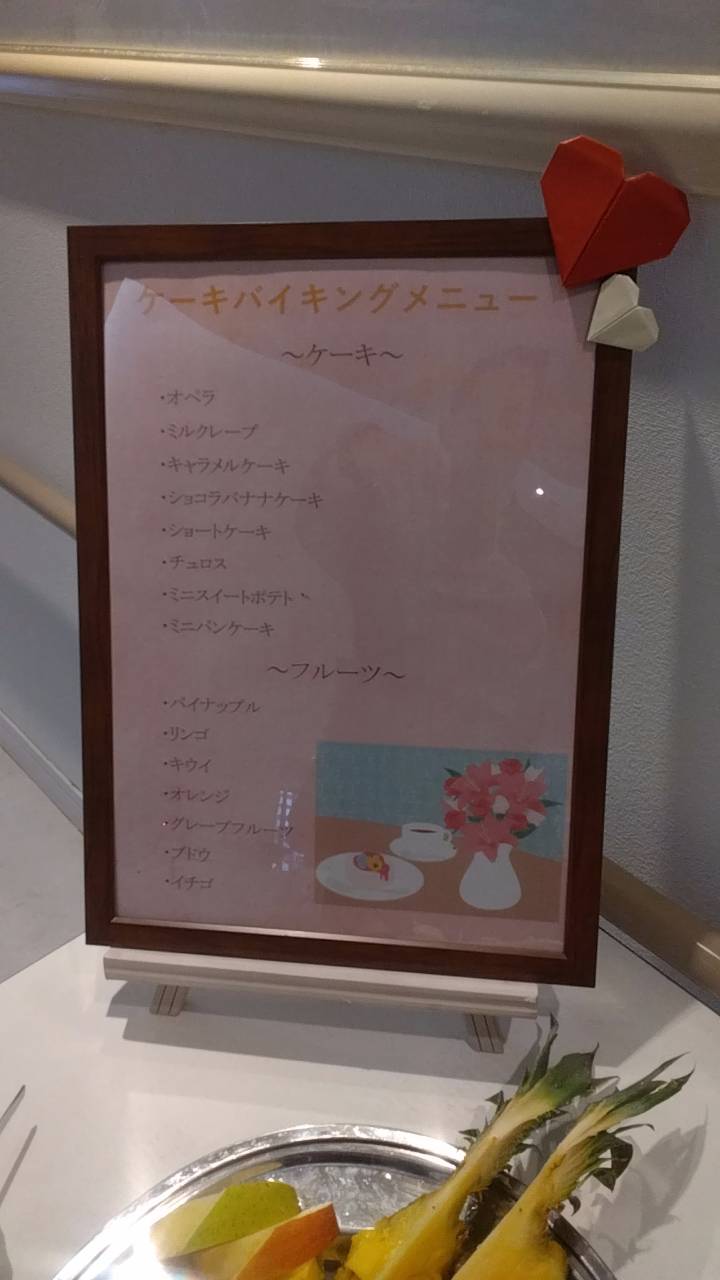 ケーキバイキングメニュー
～ケーキ～
・オペラ
・ミルクレープ
・キャラメルケーキ
・ショコラバナナケーキ
・ショートケーキ
・チュロス
・ミニスイートポテト
・ミニパンケーキ
～フルーツ～
・パイナップル
・リンゴ
・キウイ
・オレンジ
・グレープフルーツ
・ブドウ
・イチゴ